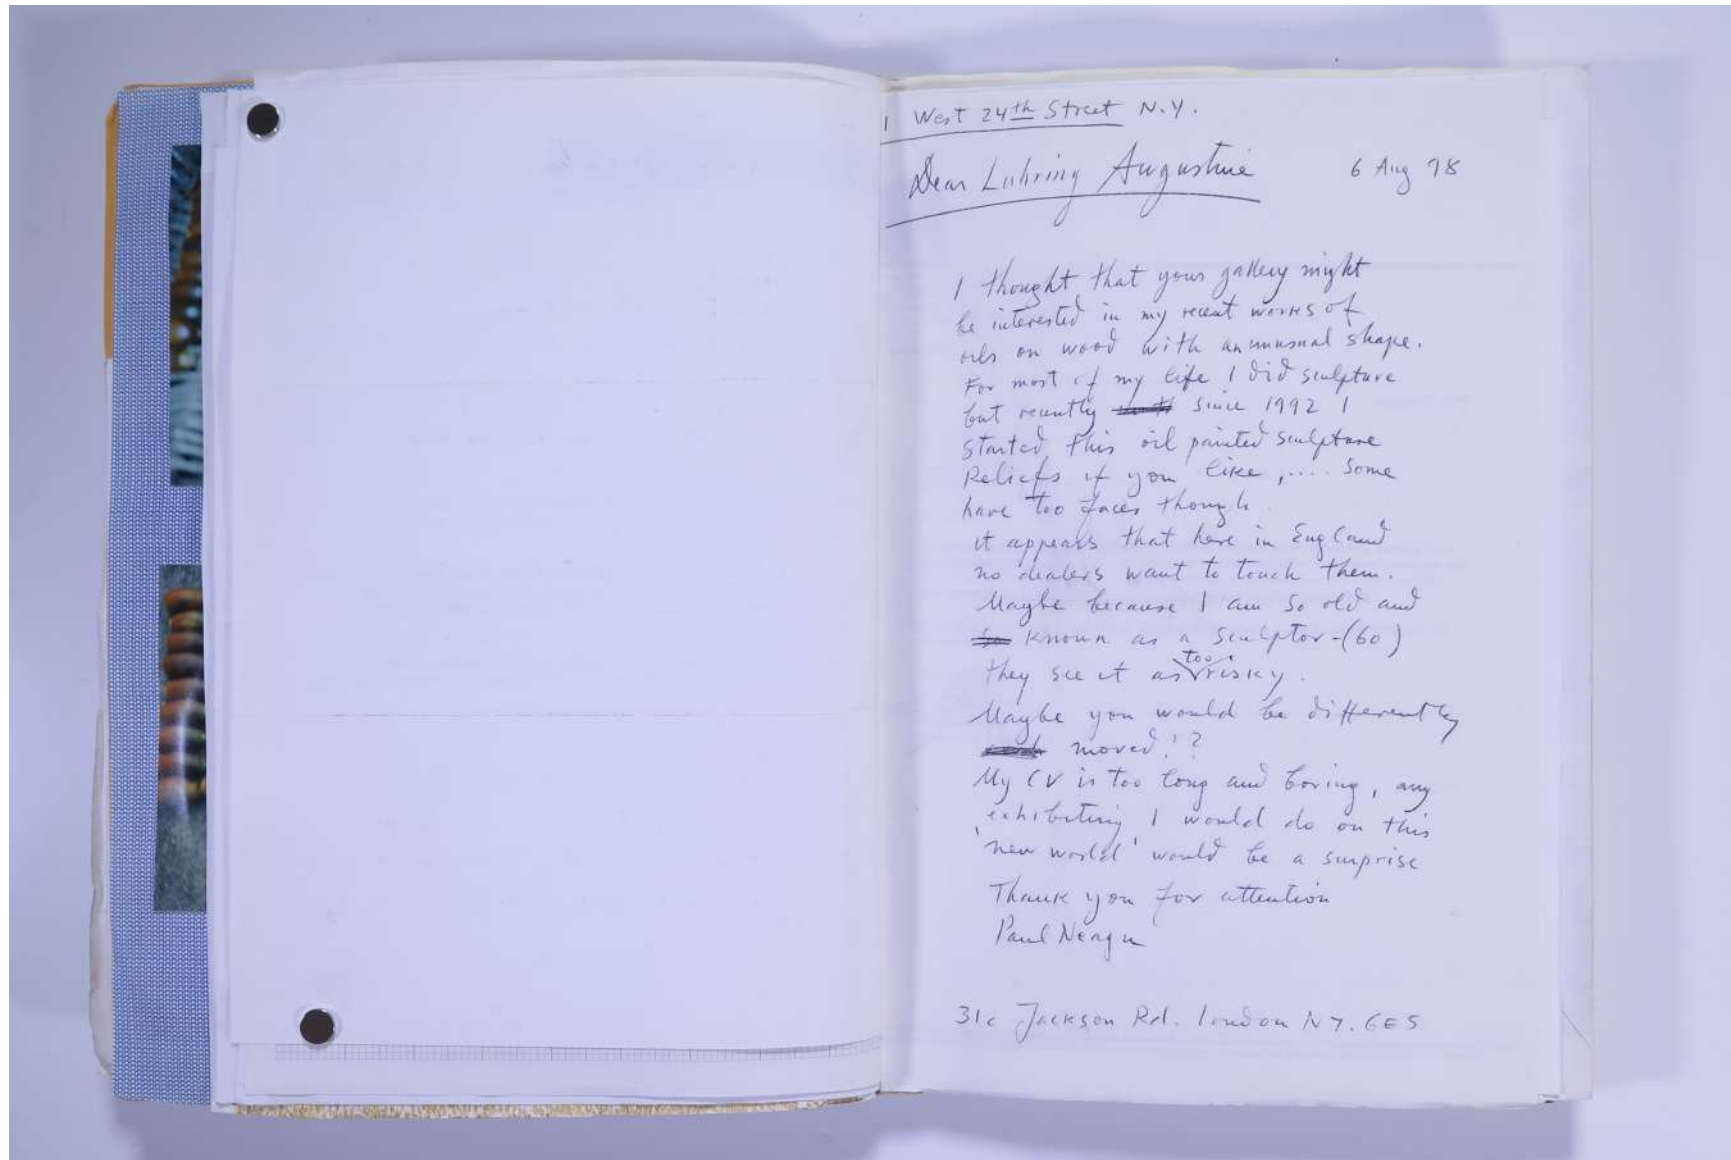 1 West 24th Street N.Y.
Dear Luhring Augustine
6 Aug 98
I thought that your gallery might
be interested in my recent works of
oils on wood with an unusual shape.
For most of my life I did sculpture
but recently since 1992 I
started this oil painted sculpture
Reliefs if you like, .... some
have too faces though.
it appears that here in England
no dealers want to touch them.
Maybe because I am so old and
so known as a sculptor - (60)
they see it as too risky.
Maybe you would be differently
moved!?
My CV is too long and boring, any
exhibiting I would do on this
'new world' would be a surprise
Thank you for attention
Paul Neagu
31c Jackson Rd. London N7. 6ES